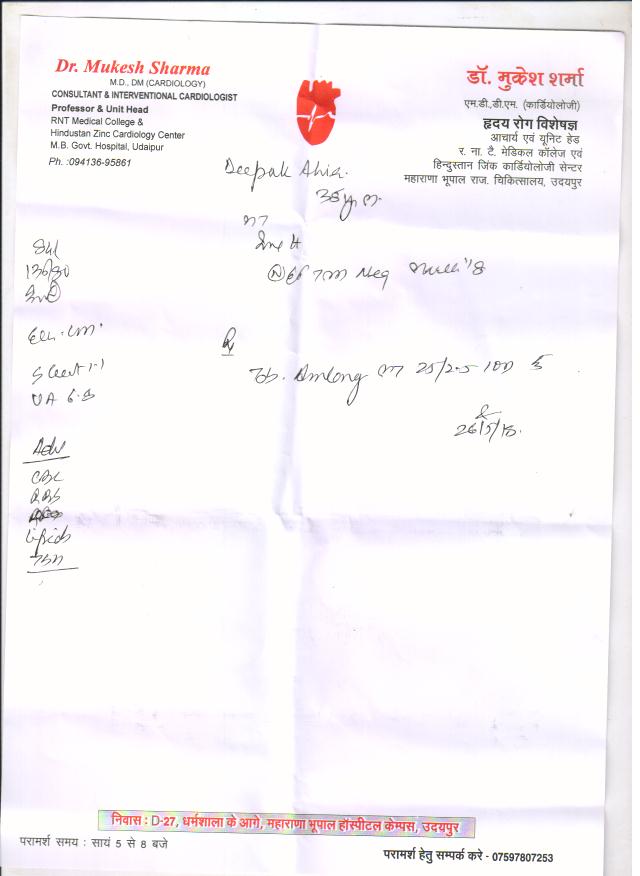 Dr. Mukesh Sharma
M.D., DM (CARDIOLOGY)
CONSULTANT & INTERVENTIONAL CARDIOLOGIST
Professor & Unit Head
RNT Medical College &
Hindustan Zinc Cardiology Center
M.B. Govt. Hospital, Udaipur
Ph. :094136-95861
डॉ. मुकेश शर्मा
एम.डी.,डी.एम. (कार्डियोलोजी)
हृदय रोग विशेषज्ञ
आचार्य एवं यूनिट हेड़
र. ना. टै. मेडिकल कॉलेज एवं
हिन्दुस्तान जिंक कार्डियोलोजी सेन्टर
महाराणा भूपाल राज. चिकित्सालय, उदयपुर
Deepak
136/80
EF Neg
Rx
Tab. Amlong 25/2.5
S Creat 1.1
UA 6.
26/5/18.
Adv
CBC
RBS
Lipids
निवास : D-27, धर्मशाला के आगे, महाराणा भूपाल हॉस्पीटल केम्पस, उदयपुर
परामर्श समय : सायं 5 से 8 बजे
परामर्श हेतु सम्पर्क करे - 07597807253